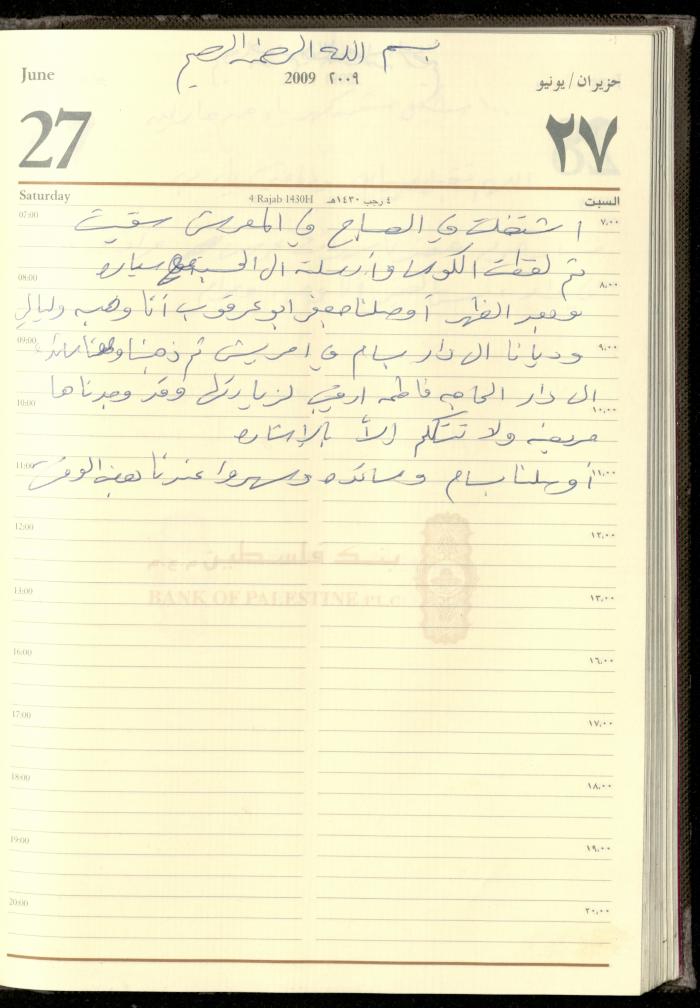 بسم الله الرحمن الرحيم
June 2009 ٢٠٠٩ حزيران / يونيو
27 ٢٧
Saturday 4 Rajab 1430H ٤ رجب ١٤٣٠هـ السبت
07:00 اشتغلت في الصباح في المعرش سقيت ٧،٠٠
ثم لقطت الكوسا وأرسلته الى الحسبة سياره
08:00 ٨،٠٠
وبعد الظهر أوصلنا جعفر ابو عرقوب أنا وهبه وليالي
09:00 وديانا الى دار بسام في امريش ثم ذهبنا ٩،٠٠
الى دار الحاجه فاطمه لزيارتها وقد وجدناها
10:00 ١٠،٠٠
مريضه ولا تتكلم الا بالإشاره
11:00 أوصلنا بسام وسائده وسهروا عندنا بعض الوقت ١١،٠٠
12:00 ١٢،٠٠
بنك فلسطين م.ع.م
BANK OF PALESTINE PLC
13:00 ١٣،٠٠
16:00 ١٦،٠٠
17:00 ١٧،٠٠
18:00 ١٨،٠٠
19:00 ١٩،٠٠
20:00 ٢٠،٠٠